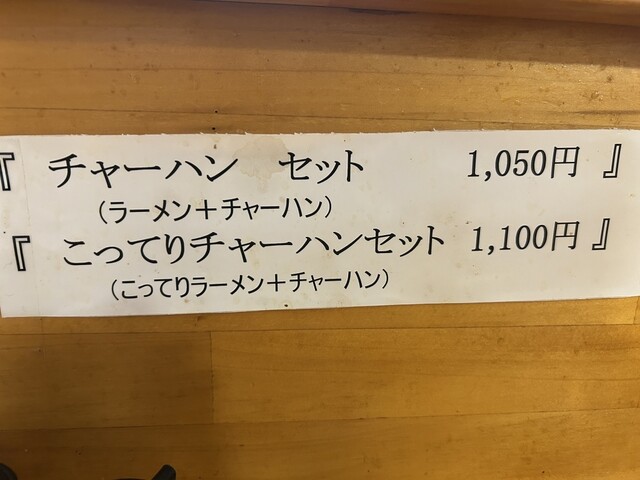 『 チャーハン セット 1,050円 』
（ラーメン＋チャーハン）
『 こってりチャーハンセット 1,100円 』
（こってりラーメン＋チャーハン）